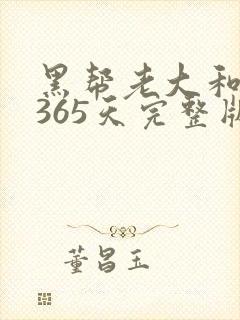 黑帮老大和
365天完整版
董昌玉